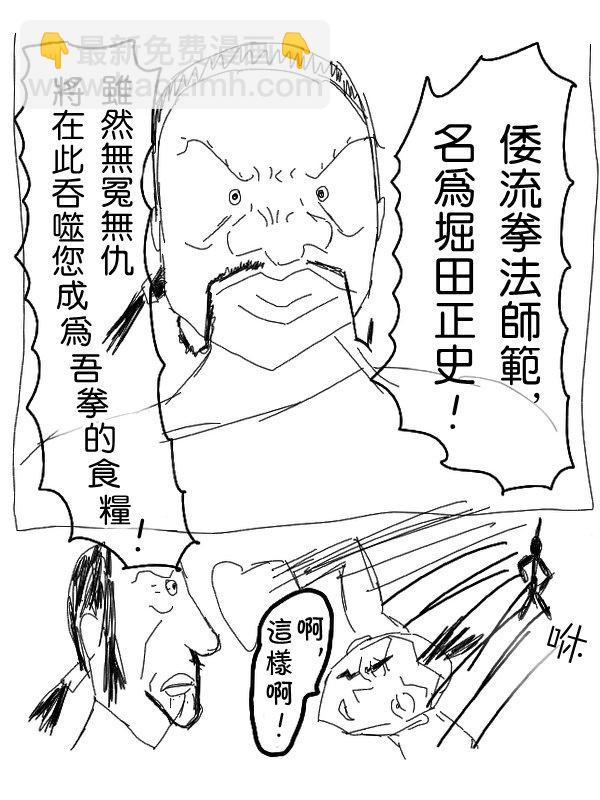 👇最新免费漫画👇
倭流拳法師範，
名爲堀田正史！
雖然無冤無仇
將在此吞噬您成爲吾拳的食糧！
啊，
這樣啊！
咻